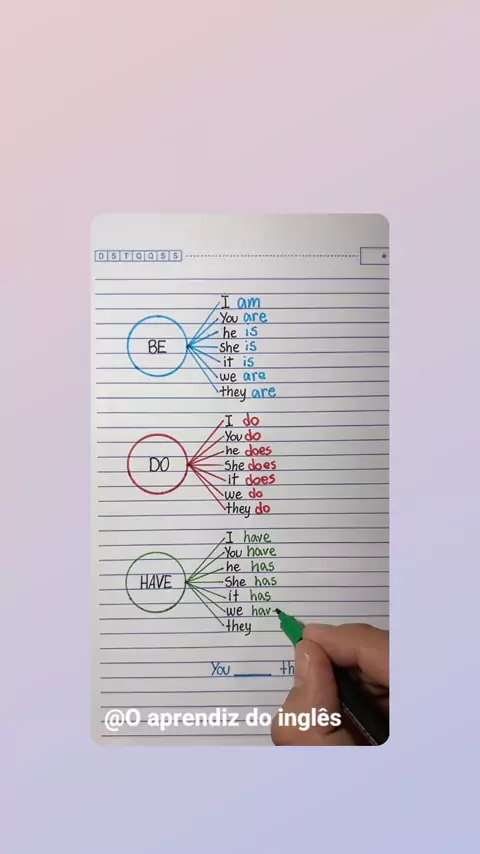 D S T Q Q S S
I am
You are
he is
She is
it is
we are
they are
BE
I do
You do
he does
She does
it does
we do
they do
DO
I have
You have
he has
She has
it has
we hav
they
HAVE
You ____ th
@O aprendiz do inglês